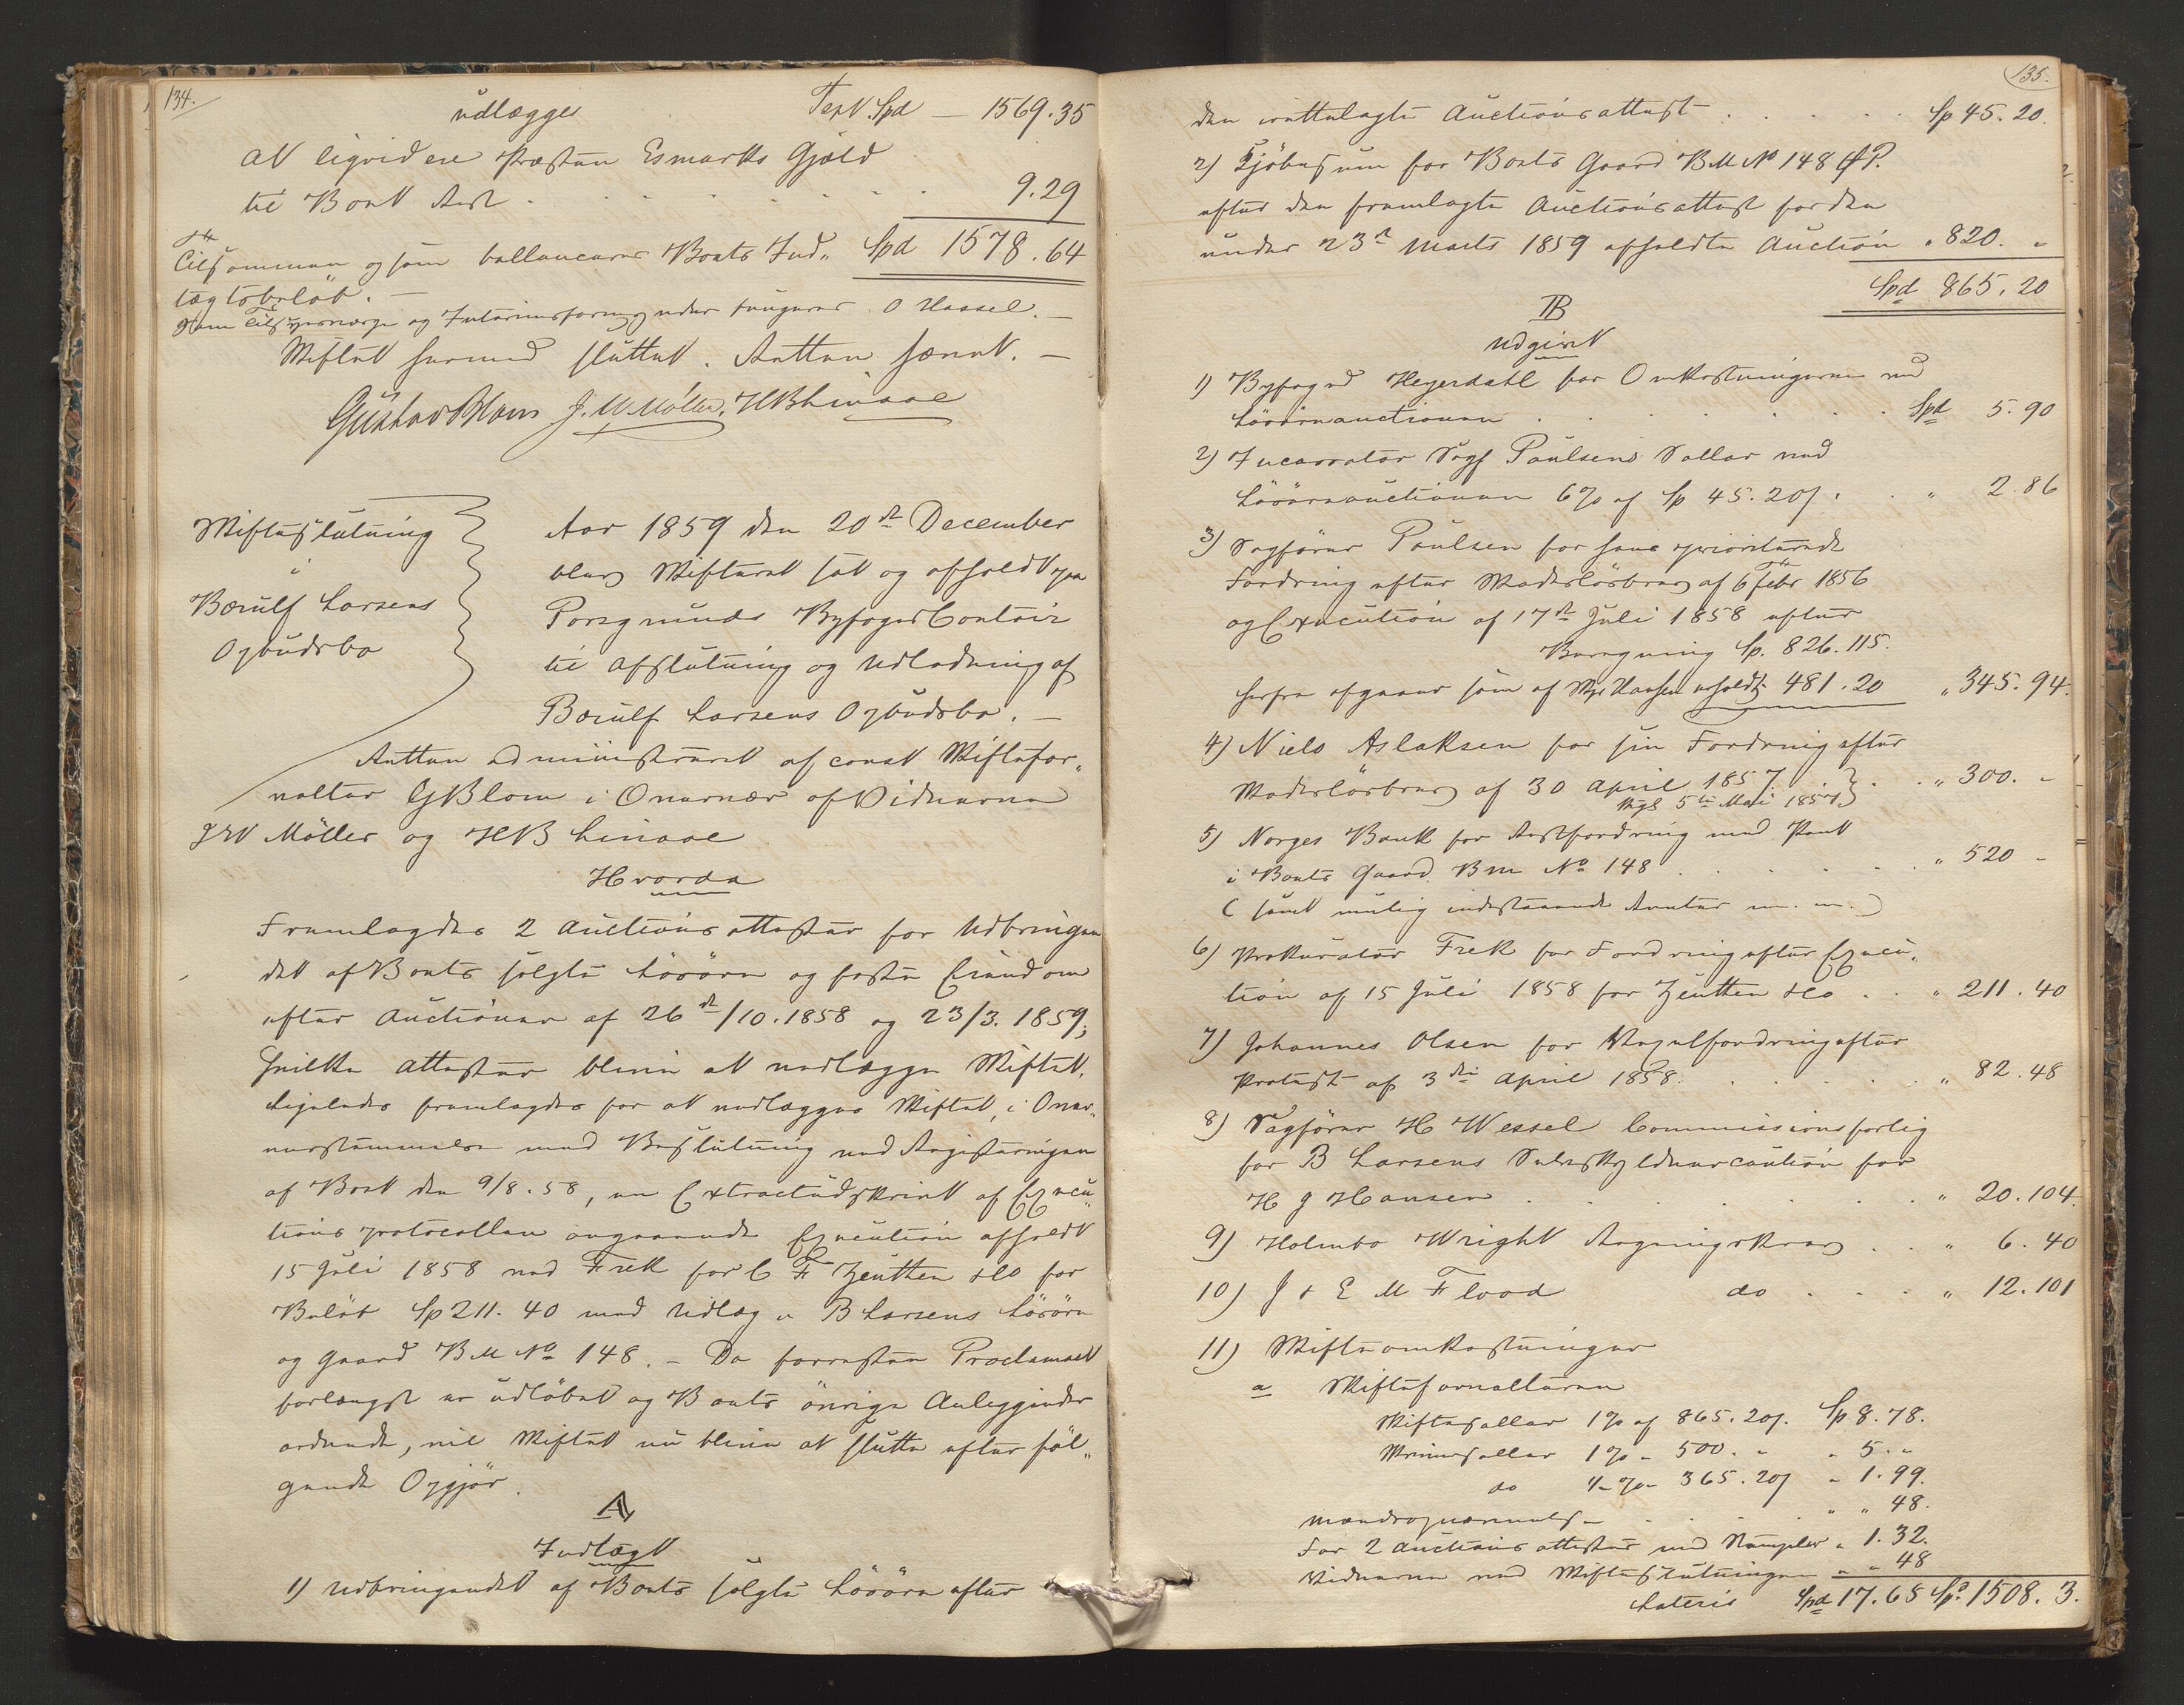 134.
udlægges Tpt Spd — 1569.35
at liqvidere Præsten Esmarks Gjæld
til Boet Rest . . . . . . 9.29
Tilsammen og som ballancerer Boets Ind„ Spd 1578.64
tægtsbeløb. —
Som Tilsynsværge og Interimsformynder fungerer O Hassel. —
Skiftet hermed sluttet. Retten hævet. —
Gustav Blom J. W. Möller. H B Linaae
Skifteslutning
i
Børulf Larsens
Opbudsbo
Aar 1859 den 20de December
blev Skifteret sat og afholdt paa
Porsgrunds Byfogedcontoir
til Afslutning og Udlodning af
Børulf Larsens Opbudsbo. —
Retten administreret af const Skiftefor„
valter G Blom i Overvær af Vidnerne
J W Möller og H B Linaae
Hvorda
Fremlagdes 2 Auctionsattester for Udbringen
det af Boets solgte Løsøre og faste Eiendom
efter Auctioner af 26de/10.1858 og 23/3.1859;
hvilke Attester blive at vedlægge Skiftet.
Ligeledes fremlagdes for at vedlægges Skiftet, i Over„
eensstemmelse med Beslutning ved Registeringen
af Boet den 9/8.58, en Extractudskrivt af Execu„
tions protocollen angaaende Execution afholdt
15 Juli 1858 ved Frek for C F Zeuthen & Co for
Beløb Sp 211.40 med Udlæg i B Larsens Løsøre
og Gaard B M No 148. – Da forresten Proclamaet
forlængst er udløbet og Boets øvrige Anliggender
ordnede, vil Skiftet nu blive at slutte efter føl„
gende Opgjør.
A
Indtægt
1) Udbringendet af Boets solgte Løsøre efter
135.
den irettelagte Auctionsattest . . . . . Sp 45.20.
2) Kjøbesum for Boets Gaard B M No 148
efter den fremlagte Auctionsattest for den
under 23de Marts 1859 afholdte Auction „ 820. „
Spd 865.20
B
Udgivt
1) Byfoged Heyerdahl for Omkostningerne ved
Løsøreauctionen . . . . . . Spd 5.90
2) Incassator Sagf Paulsens Sallar ved
Løsøreauctionen 6% af Sp 45.20ß . . „ 2.86
3) Sagfører Paulsen for hans prioriterede
Fordring efter Skadesløsbrev af 6te Febr 1856
og Execution af 17de Juli 1858 efter
Beregning Sp. 826.115.
herfra afgaaer som af Hansen erholdt 481.20 „ 345.94.
4) Niels Aslaksen for sin Fordring efter
Skadesløsbrev af 30 April 1857 . } . . „ 300. „
5te Mai 1857
5) Norges Bank for Restfordring med Pant
i Boets Gaard Bm No 148 . . . . . „ 520 „
( samt mulig indestaaende Renter m. m. )
6) Prokurator Frek for Fordring efter Execu„
tion af 15 Juli 1858 for Zeuthen & Co . . „ 211.40
7) Johannes Olsen for Vexelfordring efter
Protest af 3die April 1858. . . . . . „ 82.48
8) Sagfører H Wessel Commissionsforlig
for B Larsens Selvskyldnercaution for
H J Hansen . . . . . . „ 20.104.
9) Holmbo Wright Regningskrav . . „ 6.40
10) J & E M Flood do . . . „ 12.101
11) Skifteomkostninger
a Skifteforvalteren
Skiftesallar 1% af 865.20ß. Sp 8.78.
Skriversallar 1% „ 500. „ „ 5. „
do ½ % „ 365.20ß „ 1.99.
. . . . „ „ 48.
For 2 Auctions attester med Stempler „ 1.32.
Vidnerne ved Skifteslutningen „ „ 48
Lateris Spd 17.65 Sp. 1508.3.